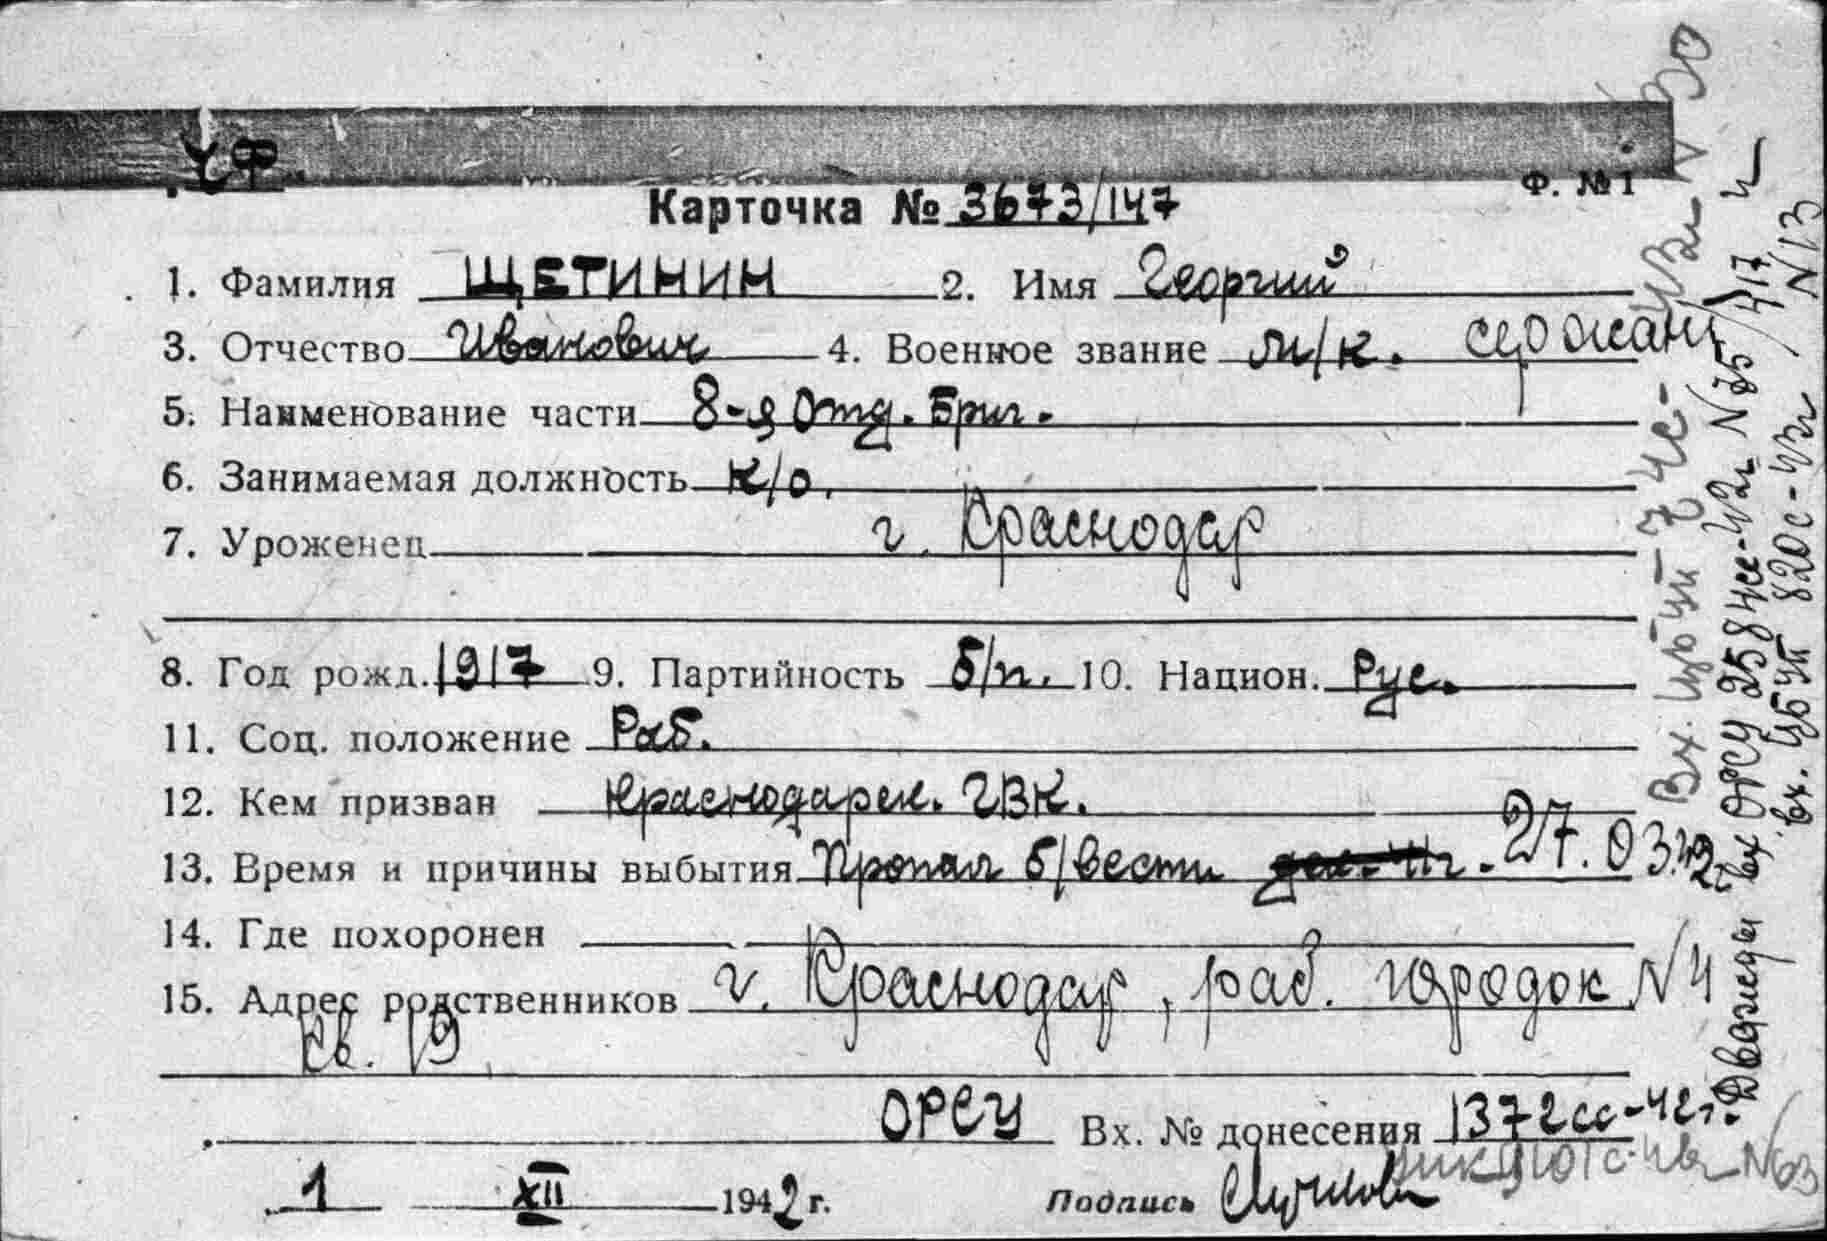 УФ
Ф. №1
Карточка № 3673/147
1. Фамилия ЩЕТИНИН 2. Имя Георгий
3. Отчество Иванович 4. Военное звание м/к. сержант
5. Наименование части 8-я Отд. Бриг.
6. Занимаемая должность к/о.
7. Уроженец г. Краснодар
8. Год рожд. 1917 9. Партийность б/п. 10. Национ. Рус.
11. Соц. положение Раб.
12. Кем призван Краснодарск. ГВК.
13. Время и причины выбытия Пропал б/вести 27.03.42г
14. Где похоронен
15. Адрес родственников г. Краснодар, раб. городок N 4
кв. 19
ОРСУ Вх. № донесения 1372сс-42г.
1 XII 1942 г. Подпись
Дважды вх ОРСУ